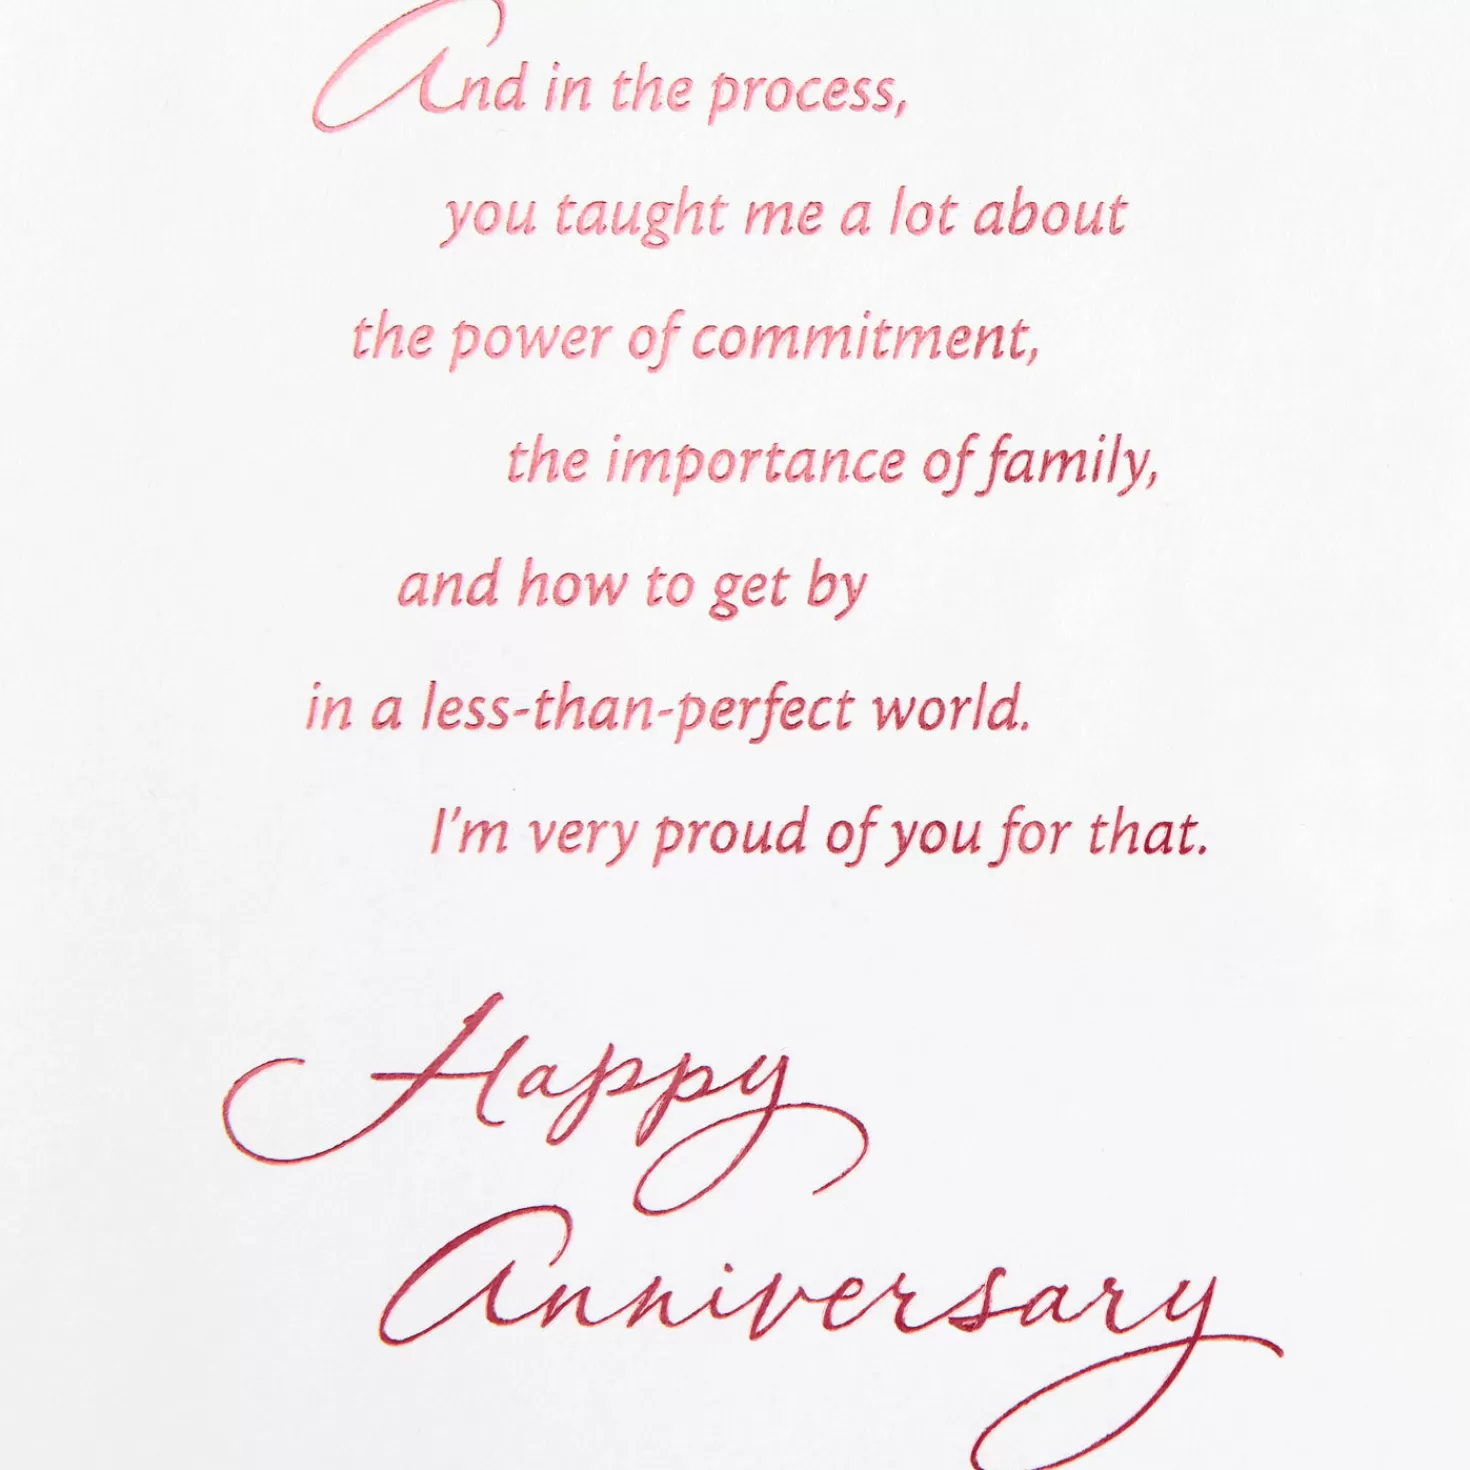 And in the process,
you taught me a lot about
the power of commitment,
the importance of family,
and how to get by
in a less-than-perfect world.
I'm very proud of you for that.
Happy
Anniversary